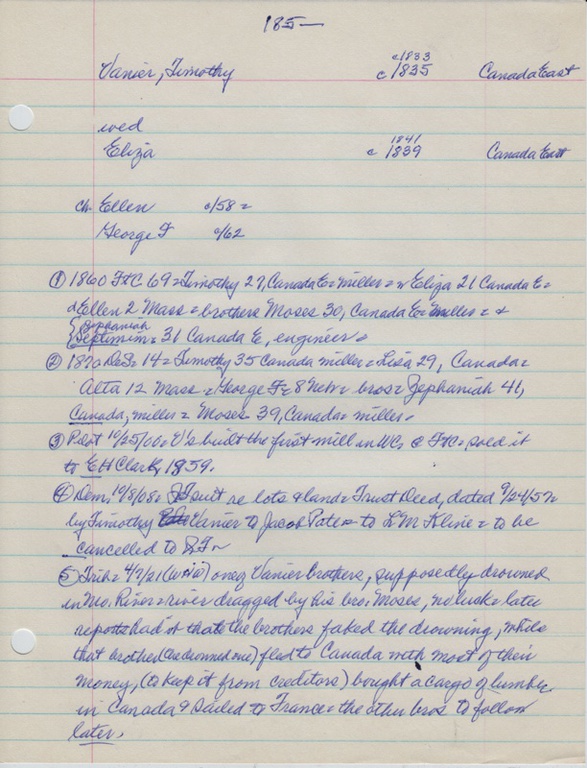 185—
c1833
Vanier, Timothy c1835 Canada East
wed
1841
Eliza c 1839 Canada East
ch Ellen c/58 =
George F c/62
① 1860 FtC 69 = Timothy 27, Canada E = miller = w Eliza 21 Canada E =
d Ellen 2 Mass = brothers Moses 30, Canada E = miller = &
Zephaniah
Septimim = 31 Canada E, engineer =
② 1870 DeS = 14 = Timothy 35 Canada miller = Lisa 29, Canada =
Alta 12 Mass = George F = 8 Nebr = bros = Zephaniah 41,
Canada, miller = Moses = 39, Canada = miller =
③ Pilot 10/25/00 = V's built the first mill in WC, @ FtC = sold it
to EH Clark, 1859.
④ Dem, 10/8/08 = suit re lots & land = Trust Deed, dated 9/24/57
by Timothy Vanier to Jacob Pate = to LM Kline = to be
cancelled to
⑤ Trib = 4/7/21 (WHW) one of Vanier brothers, supposedly drowned
in Mo. River = river dragged by his bro. Moses, no luck = later
reports had it that the brothers faked the drowning, while
that brother (the drowned one) fled to Canada with most of their
money, (to keep it from creditors) bought a cargo of lumber
in Canada & sailed to France = the other bros to follow
later.